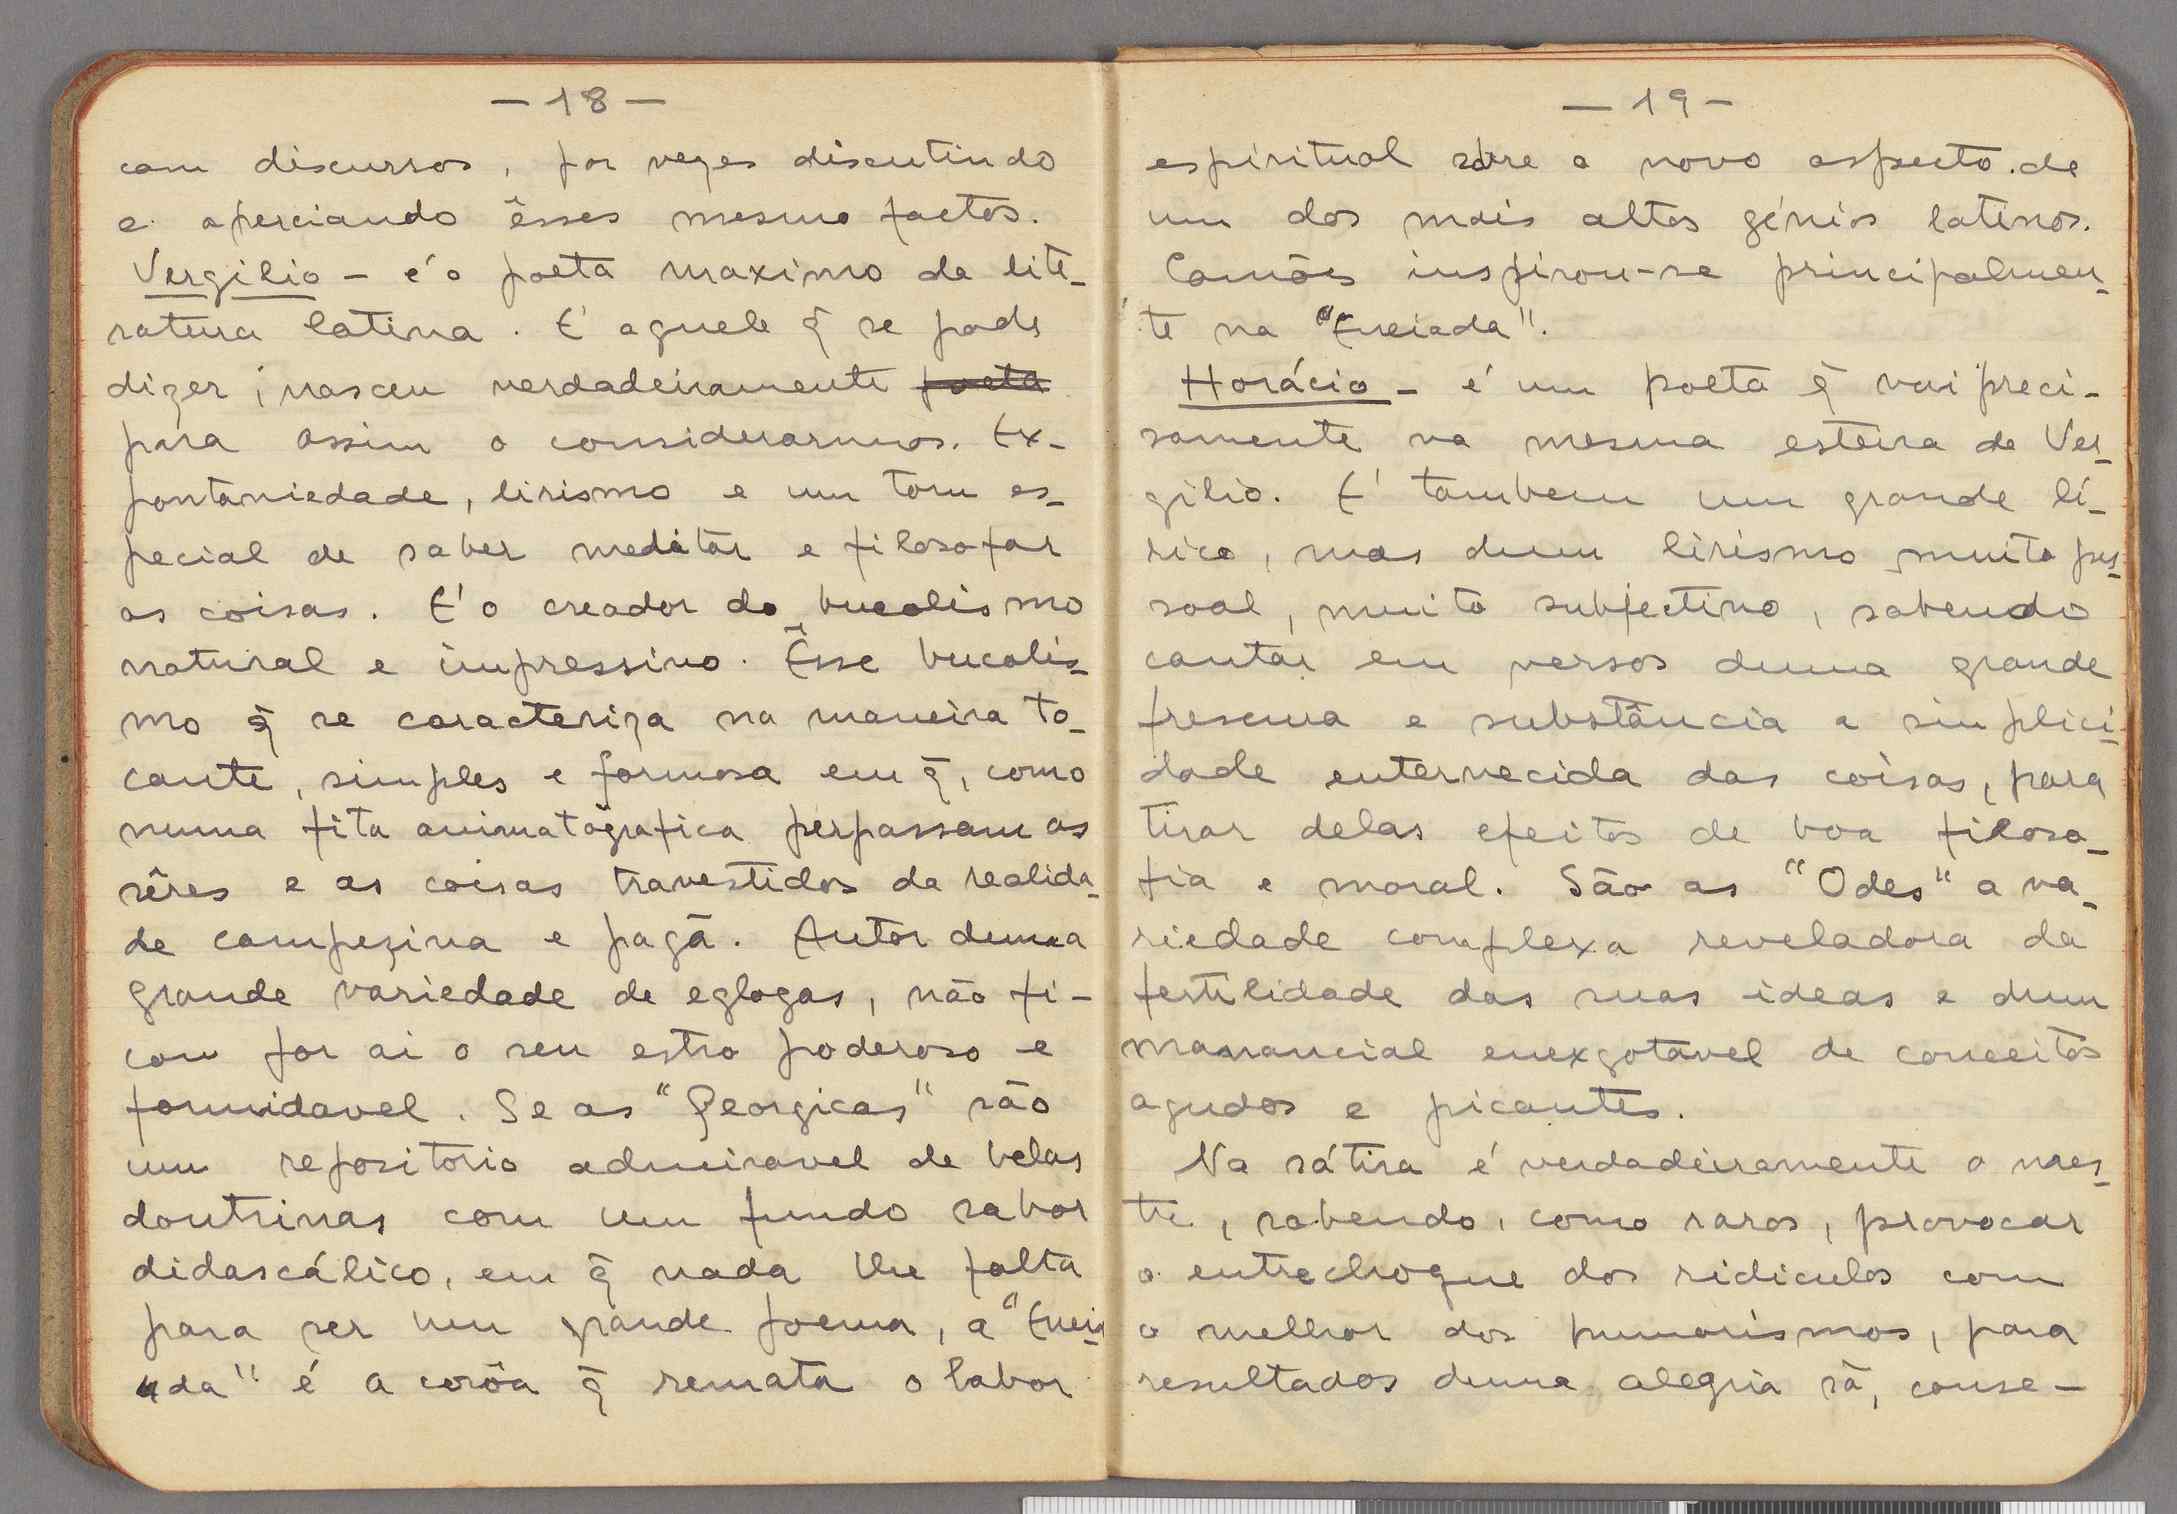 — 18 —
com discursos, por vezes discutindo
e aperciando êsses mesmo factos.
Vergilio - é o poeta maximo da lite-
ratura latina. E' aquele q̃ se pode
dizer, nasceu verdadeiramente poeta
para assim o considerarmos. Ex-
pontaniedade, lirismo e um tom es-
pecial de saber meditar e filosofar
as coisas. E' o creador do bucolismo
natural e impressivo. Êsse bucolis-
mo q̃ se caracteriza na maneira to-
cante, simples e formosa em q̃, como
numa fita animatografica perpassam os
sêres e as coisas travestidos da realida-
de campezina e pagã. Autor duma
grande variedade de eglogas, não fi-
cou por ai o seu estro poderoso e
formidavel. Se as "Georgicas" são
um repositorio admiravel de belas
doutrinas com um fundo sabor
didascálico, em q̃ nada lhe falta
para ser um grande poema, a "Enei-
da" é a corôa q̃ remata o labor
— 19 —
espiritual sobre o novo aspecto de
um dos mais altos génios latinos.
Camões inspirou-se principalmen-
te na "Eneiada".
Horácio - é um poeta q̃ vai preci-
samente na mesma esteira de Ver-
gilio. E' tambem um grande lí-
rico, mas dum lirismo muito pes-
soal, muito subjectivo, sabendo
cantar em versos duma grande
frescura e substância a simplici-
dade enternecida das coisas, para
tirar delas efeitos de boa filoso-
fia e moral. São as "Odes" a va-
riedade complexa reveladora da
fertilidade das suas ideas e dum
manancial enexgotavel de conceitos
agudos e picantes.
Na sátira é verdadeiramente o mes-
tre, sabendo, como raros, provocar
o entrechoque dos ridiculos com
o melhor dos humorismos, para
resultados duma alegria sã, conse-